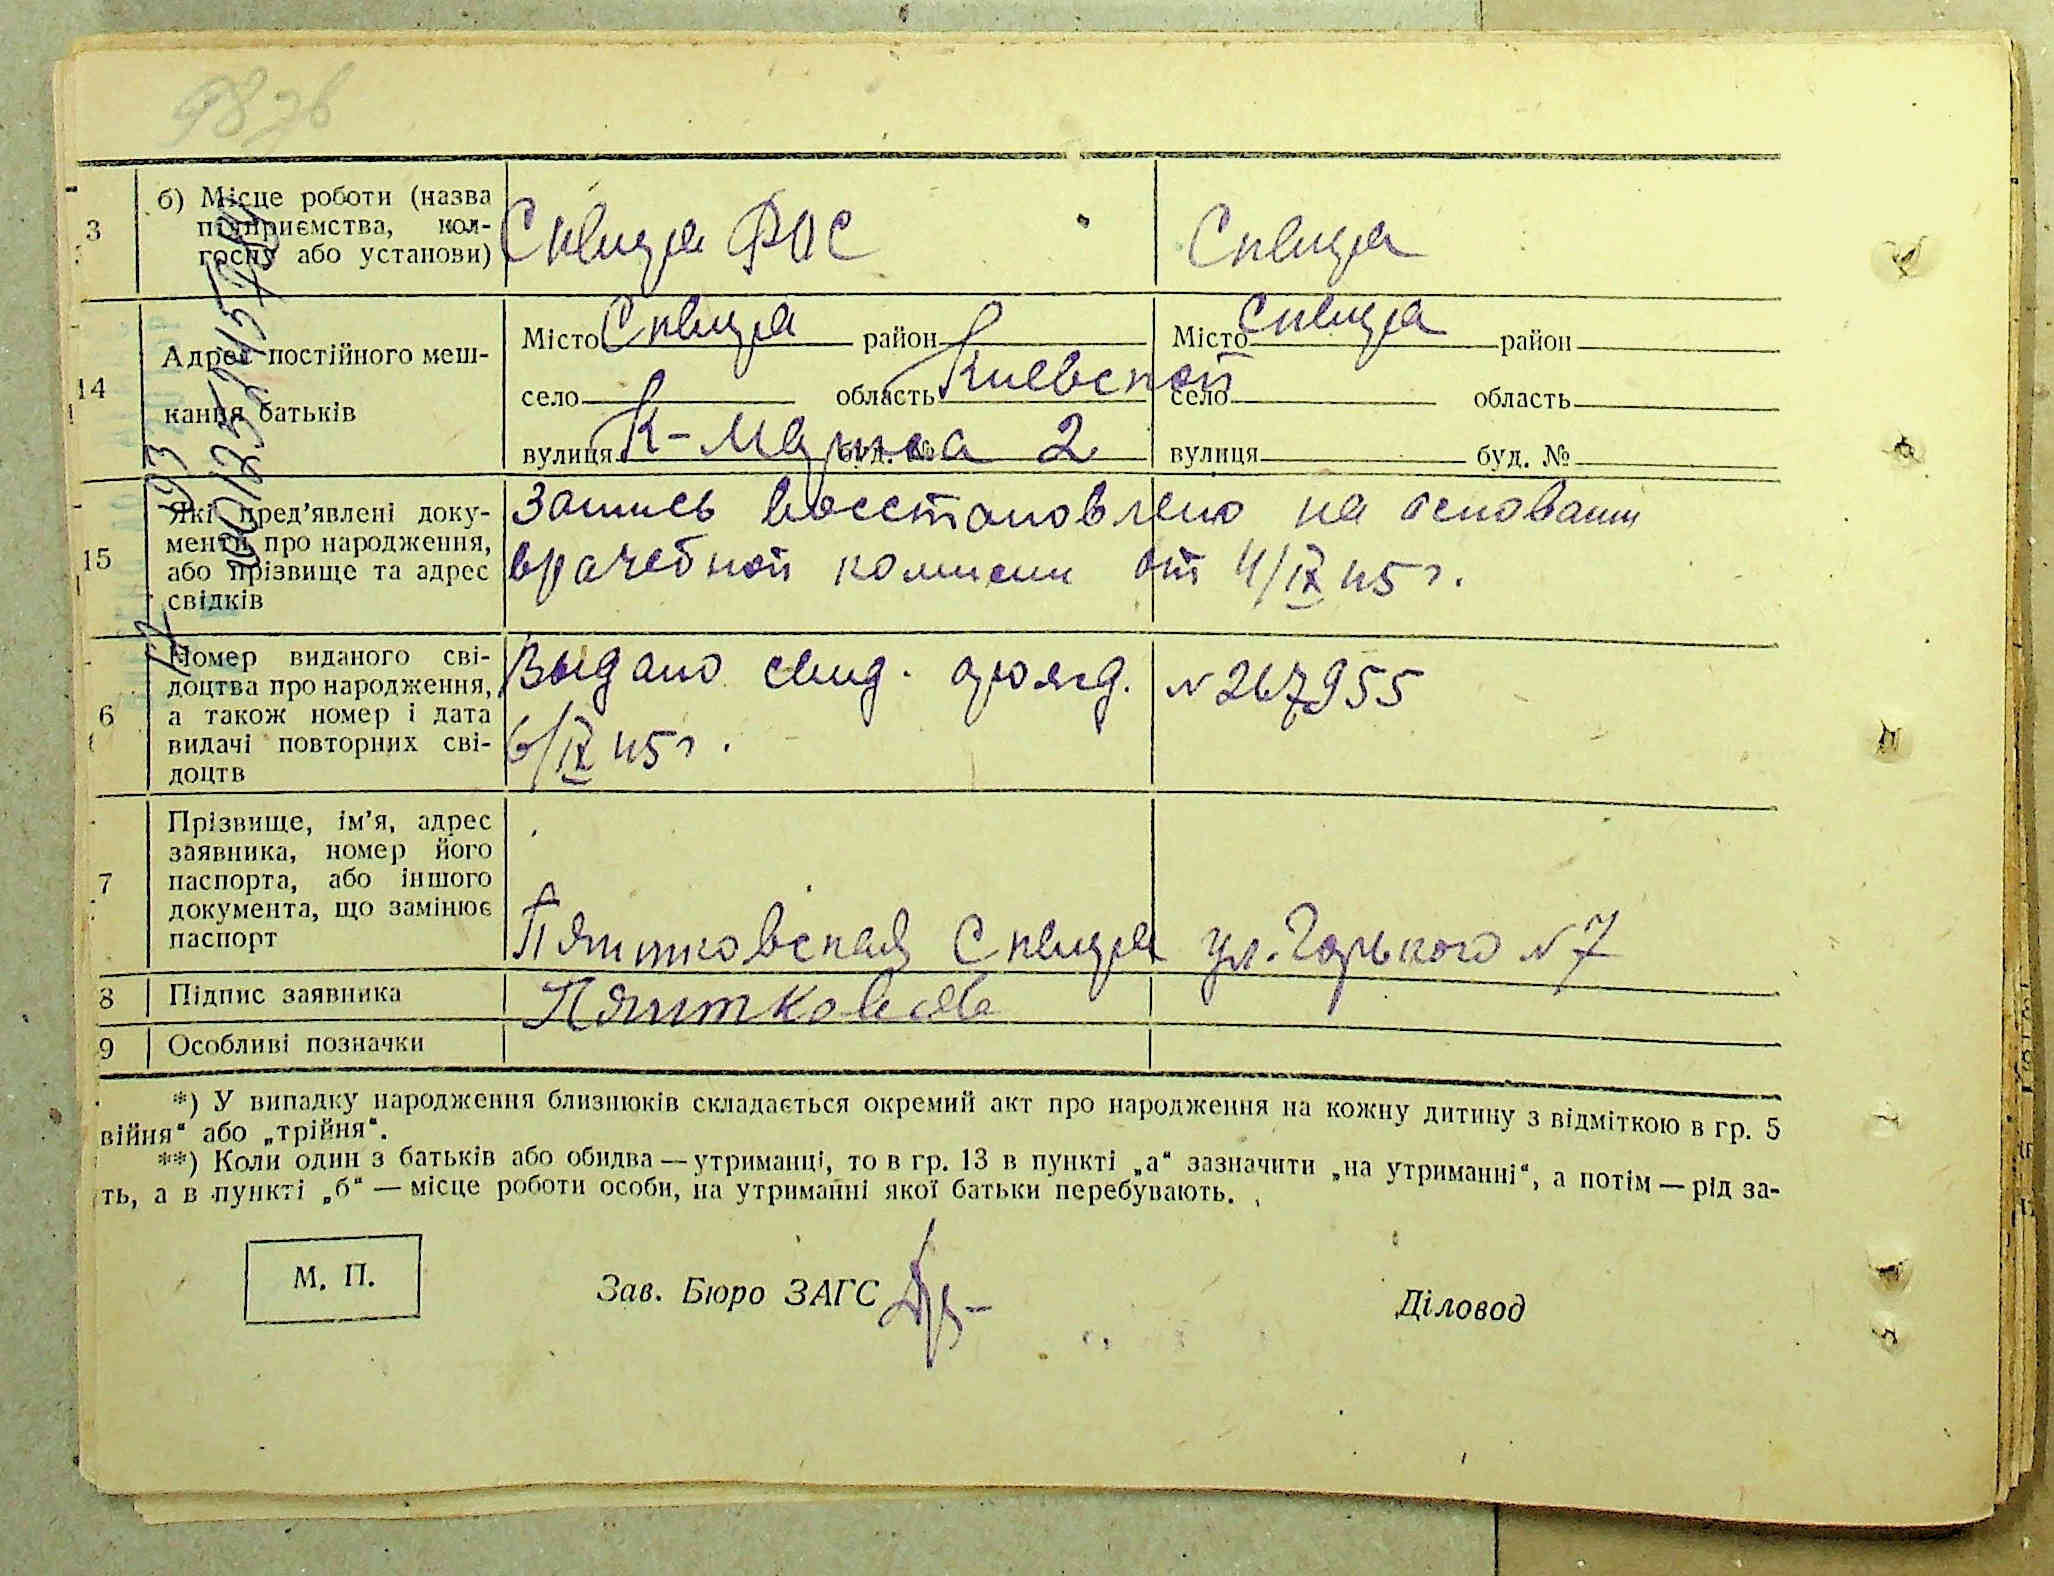 3
б) Місце роботи (назва
підприємства, кол-
госпу або установи)
Сквира ФОС
Сквира
14
Адрес постійного меш-
кання батьків
Місто Сквира район
село область Киевской
вулиця К-Маркса буд. № 2
Місто Сквира район
село область
вулиця буд. №
15
Які пред’явлені доку-
менти про народження,
або прізвище та адрес
свідків
Запись восстановлено на основании
врачебной комисии от 4/IX 45 г.
6
Номер виданого сві-
доцтва про народження,
а також номер і дата
видачі повторних сві-
доцтв
Выдано свид. о рожд. № 267955
6/IX 45 г.
7
Прізвище, ім’я, адрес
заявника, номер його
паспорта, або іншого
документа, що замінює
паспорт
Пятковская Сквира ул. Горького № 7
8
Підпис заявника
9
Особливі позначки
*) У випадку народження близнюків складається окремий акт про народження на кожну дитину з відміткою в гр. 5
війня“ або „трійня“.
**) Коли один з батьків або обидва — утриманці, то в гр. 13 в пункті „а“ зазначити „на утриманні“, а потім — рід за-
ть, а в пункті „б“ — місце роботи особи, на утриманні якої батьки перебувають.
М. П.
Зав. Бюро ЗАГС
Діловод